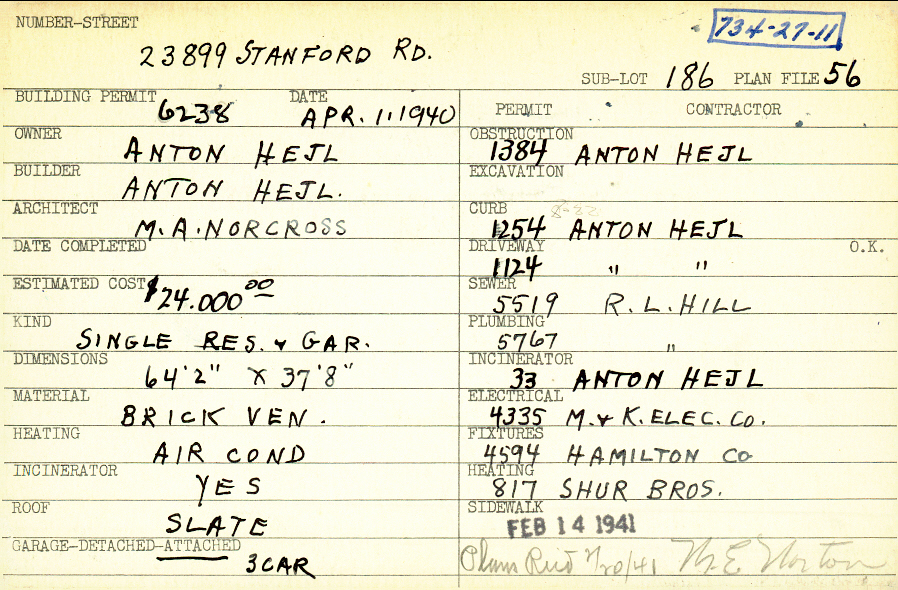 NUMBER-STREET
734-27-11
23899 STANFORD RD.
SUB-LOT 186 PLAN FILE 56
BUILDING PERMIT 6238 DATE APR. 1, 1940
OWNER ANTON HEJL
BUILDER ANTON HEJL.
ARCHITECT M.A. NORCROSS
DATE COMPLETED
ESTIMATED COST $24.000 00
KIND SINGLE RES. & GAR.
DIMENSIONS 64'2" X 37'8"
MATERIAL BRICK VEN.
HEATING AIR COND
INCINERATOR YES
ROOF SLATE
GARAGE-DETACHED-ATTACHED 3 CAR
PERMIT CONTRACTOR
OBSTRUCTION 1384 ANTON HEJL
EXCAVATION
CURB 1254 ANTON HEJL
DRIVEWAY 1124 " " O.K.
SEWER 5519 R.L. HILL
PLUMBING 5767 "
INCINERATOR 33 ANTON HEJL
ELECTRICAL 4335 M. & K. ELEC. CO.
FIXTURES 4594 HAMILTON CO
HEATING 817 SHUR BROS.
SIDEWALK FEB 14 1941
Plans 20/41 M.E. Norton